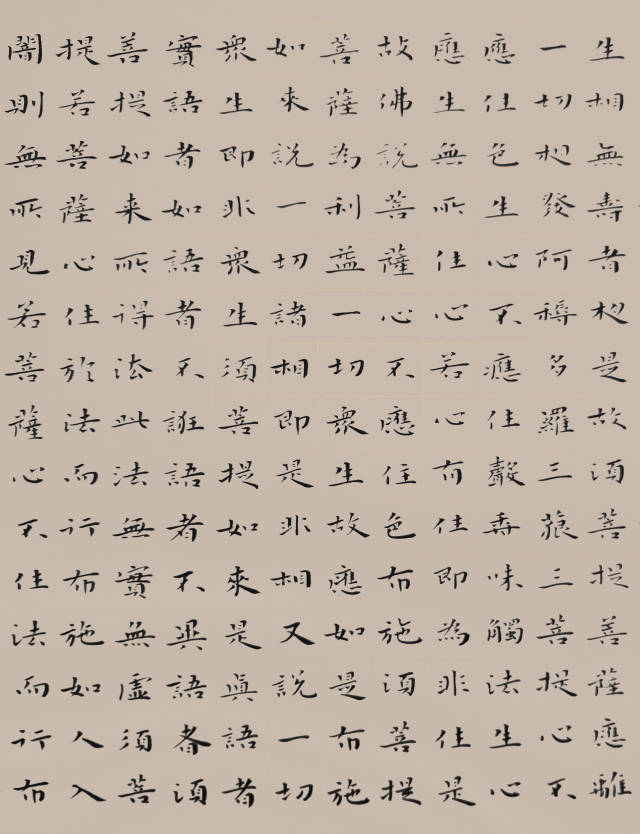 生相無壽者相是故須菩提菩薩應離
一切相發阿耨多羅三藐三菩提心不
應住色生心不應住聲香味觸法生心
應生無所住心若心有住即為非住是
故佛說菩薩心不應住色布施須菩提
菩薩為利益一切眾生故應如是布施
如來說一切諸相即是非相又說一切
眾生即非眾生須菩提如來是真語者
實語者如語者不誑語者不異語者須
菩提如来所得法此法無實無虛須菩
提若菩薩心住於法而行布施如人入
闇則無所見若菩薩心不住法而行布